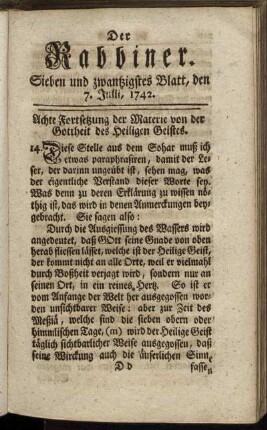 Der
Rabbiner.
Sieben und zwantzigstes Blatt, den
7. Julii, 1742.
Achte Fortsetzung der Materie von der
Gottheit des Heiligen Geistes.
14. Diese Stelle aus dem Sohar muß ich
etwas paraphrasiren, damit der Le-
ser, der darinn ungeübt ist, sehen mag, was
der eigentliche Verstand dieser Worte sey.
Was denn zu deren Erklärung zu wissen nö-
thig ist, das wird in denen Anmerckungen bey-
gebracht. Sie sagen also:
Durch die Ausgiessung des Wassers wird
angedeutet, daß GOtt seine Gnade von oben
herab fliessen lässet, welche ist der Heilige Geist,
der kommt nicht an alle Orte, weil er vielmahl
durch Boßheit verjagt wird, sondern nur an
seinen Ort, in ein reines Hertz. So ist er
vom Anfange der Welt her ausgegossen wor-
den unsichtbarer Weise: aber zur Zeit des
Meßiä, welche sind die sieben obern oder
himmlischen Tage, (m) wird der Heilige Geist
täglich sichtbarlicher Weise ausgegossen, daß
seine Wirckung auch die äuserlichen Sinn
D d
fasse